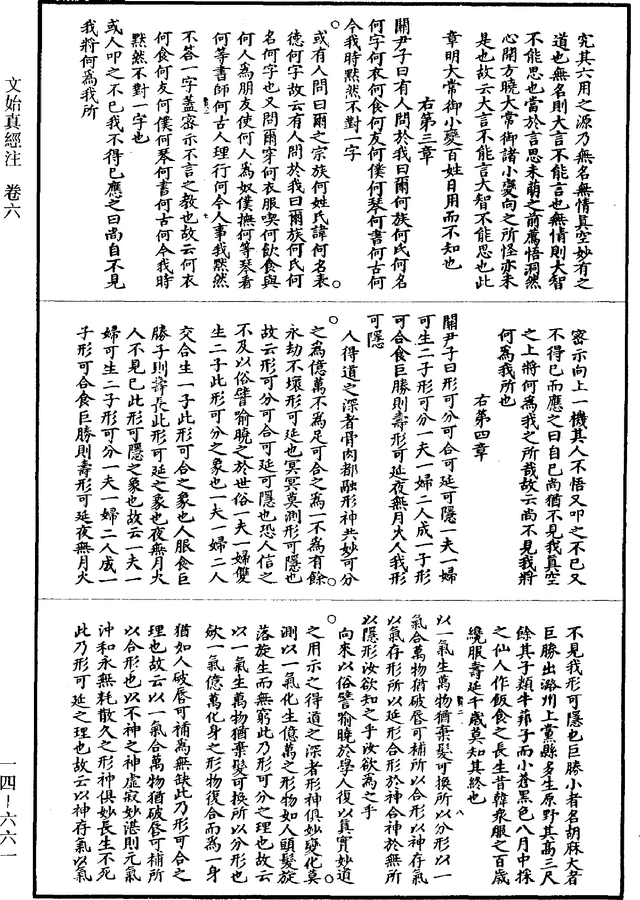 究其六用之源乃無名無情真空妙有之
道也無名則大言不能言也無情則大智
不能思也當於言思未萌之前薦悟洞然
心開方曉大常御諸小變向之所怪亦未
是也故云大言不能言大智不能思也此
章明大常御小變百姓日用而不知也
右第三章
關尹子曰有人問於我曰爾何族何氏何名
何字何衣何食何友何僕何琴何書何古何
今我時默然不對一字
或有人問曰爾之宗族何姓氏諱何名表
德何字故云有人問於我曰爾族何氏何
名何字也又問爾穿何衣服喫何飲食與
何人為朋友使何人為奴僕撫何等琴看
何等書師何古人理行何今人事我默然
不答一字蓋密示不言之教也故云何衣
何食何友何僕何琴何書何古何今我時
默然不對一字也
或人叩之不已我不得已應之曰尚自不見
我將何為我所
密示向上一機其人不悟又叩之不已又
不得已而應之曰自已尚猶不見我真空
之上將何為我之所哉故云尚不見我將
何為我所也
右第四章
關尹子曰形可分可合可延可隱一夫一婦
可生二子形可分一夫一婦二人成一子形
可合食巨勝則壽形可延夜無月火人我形
可隱
人得道之深者骨肉都融形神共妙可分
之為億萬不為足可合之為一不為有餘
永劫不壞形可延也冥冥莫測形可隱也
故云形可分可合可延可隱也恐人信之
不及以俗譬喻曉之於世俗一夫一婦雙
生二子此形可分之象也一夫一婦二人
交合生一子此形可合之象也人服食巨
勝子則壽長此形可延之象也夜無月火
人不見已此形可隱之象也故云一夫一
婦可生二子形可分一夫一婦二人成一
子形可合食巨勝則壽形可延夜無月火
不見我形可隱也巨勝小者名胡麻大者
巨勝出潞州上黨縣多生原野其高三尺
餘其子類牛蒡子而小蒼黑色八月中採
之仙人作飯食之長生昔韓衆服之百歲
纔服壽延千歲莫知其終也
以一氣生萬物猶棄髮可換所以分形以一
氣合萬物猶破唇可補所以合形以神存氣
以氣存形所以延形合形於神合神於無所
以隱形汝欲知之乎汝欲為之乎
向來以俗譬喻曉於學人復以真實妙道
之用示之得道之深者形神俱妙變化莫
測以一氣化生億萬之形物如人頭髮旋
落旋生而無窮此乃形可分之理也故云
以一氣生萬物猶棄髮可換所以分形也
欲一氣億萬化身之形物復合而為一身
猶如人破唇可補為無缺此乃形可合之
理也故云以一氣合萬物猶破唇可補所
以合形也以不神之神虛寂妙湛則元氣
沖和永無耗散久之形神俱妙長生不死
此乃形可延之理也故云以神存氣以氣
文始真經注 卷六
一四-六六一